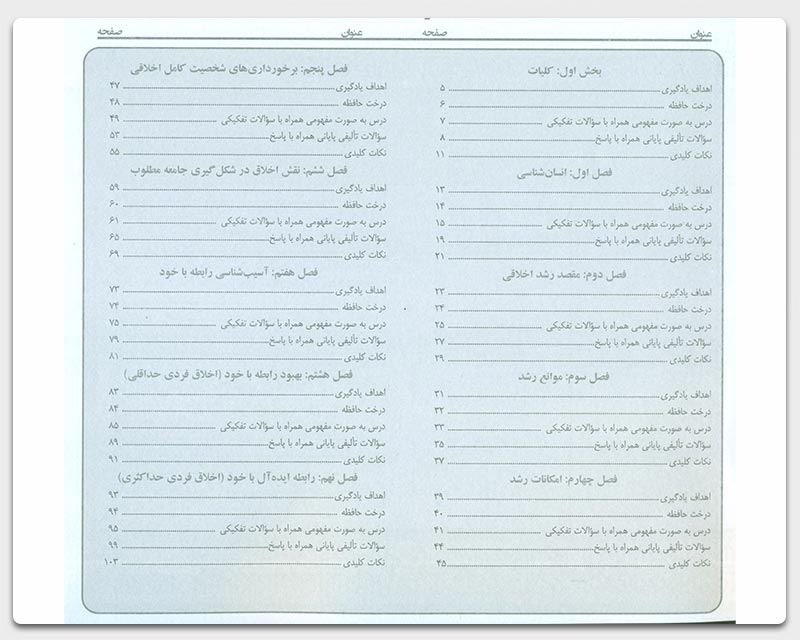 عنوان صفحه
بخش اول: کلیات
اهداف یادگیری ۵
درخت حافظه ۶
درس به صورت مفهومی همراه با سؤالات تفکیکی ۷
سؤالات تألیفی پایانی همراه با پاسخ ۸
نکات کلیدی ۱۱
فصل اول: انسان‌شناسی
اهداف یادگیری ۱۳
درخت حافظه ۱۴
درس به صورت مفهومی همراه با سؤالات تفکیکی ۱۵
سؤالات تألیفی پایانی همراه با پاسخ ۱۹
نکات کلیدی ۲۱
فصل دوم: مقصد رشد اخلاقی
اهداف یادگیری ۲۳
درخت حافظه ۲۴
درس به صورت مفهومی همراه با سؤالات تفکیکی ۲۵
سؤالات تألیفی پایانی همراه با پاسخ ۲۷
نکات کلیدی ۲۹
فصل سوم: موانع رشد
اهداف یادگیری ۳۱
درخت حافظه ۳۲
درس به صورت مفهومی همراه با سؤالات تفکیکی ۳۳
سؤالات تألیفی پایانی همراه با پاسخ ۳۵
نکات کلیدی ۳۷
فصل چهارم: امکانات رشد
اهداف یادگیری ۳۹
درخت حافظه ۴۰
درس به صورت مفهومی همراه با سؤالات تفکیکی ۴۱
سؤالات تألیفی پایانی همراه با پاسخ ۴۴
نکات کلیدی ۴۵
عنوان صفحه
فصل پنجم: برخورداری‌های شخصیت کامل اخلاقی
اهداف یادگیری ۴۷
درخت حافظه ۴۸
درس به صورت مفهومی همراه با سؤالات تفکیکی ۴۹
سؤالات تألیفی پایانی همراه با پاسخ ۵۳
نکات کلیدی ۵۵
فصل ششم: نقش اخلاق در شکل‌گیری جامعه مطلوب
اهداف یادگیری ۵۹
درخت حافظه ۶۰
درس به صورت مفهومی همراه با سؤالات تفکیکی ۶۱
سؤالات تألیفی پایانی همراه با پاسخ ۶۵
نکات کلیدی ۶۹
فصل هفتم: آسیب‌شناسی رابطه با خود
اهداف یادگیری ۷۳
درخت حافظه ۷۴
درس به صورت مفهومی همراه با سؤالات تفکیکی ۷۵
سؤالات تألیفی پایانی همراه با پاسخ ۷۹
نکات کلیدی ۸۱
فصل هشتم: بهبود رابطه با خود (اخلاق فردی حداقلی)
اهداف یادگیری ۸۳
درخت حافظه ۸۴
درس به صورت مفهومی همراه با سؤالات تفکیکی ۸۵
سؤالات تألیفی پایانی همراه با پاسخ ۸۹
نکات کلیدی ۹۱
فصل نهم: رابطه ایده‌آل با خود (اخلاق فردی حداکثری)
اهداف یادگیری ۹۳
درخت حافظه ۹۴
درس به صورت مفهومی همراه با سؤالات تفکیکی ۹۵
سؤالات تألیفی پایانی همراه با پاسخ ۹۹
نکات کلیدی ۱۰۳